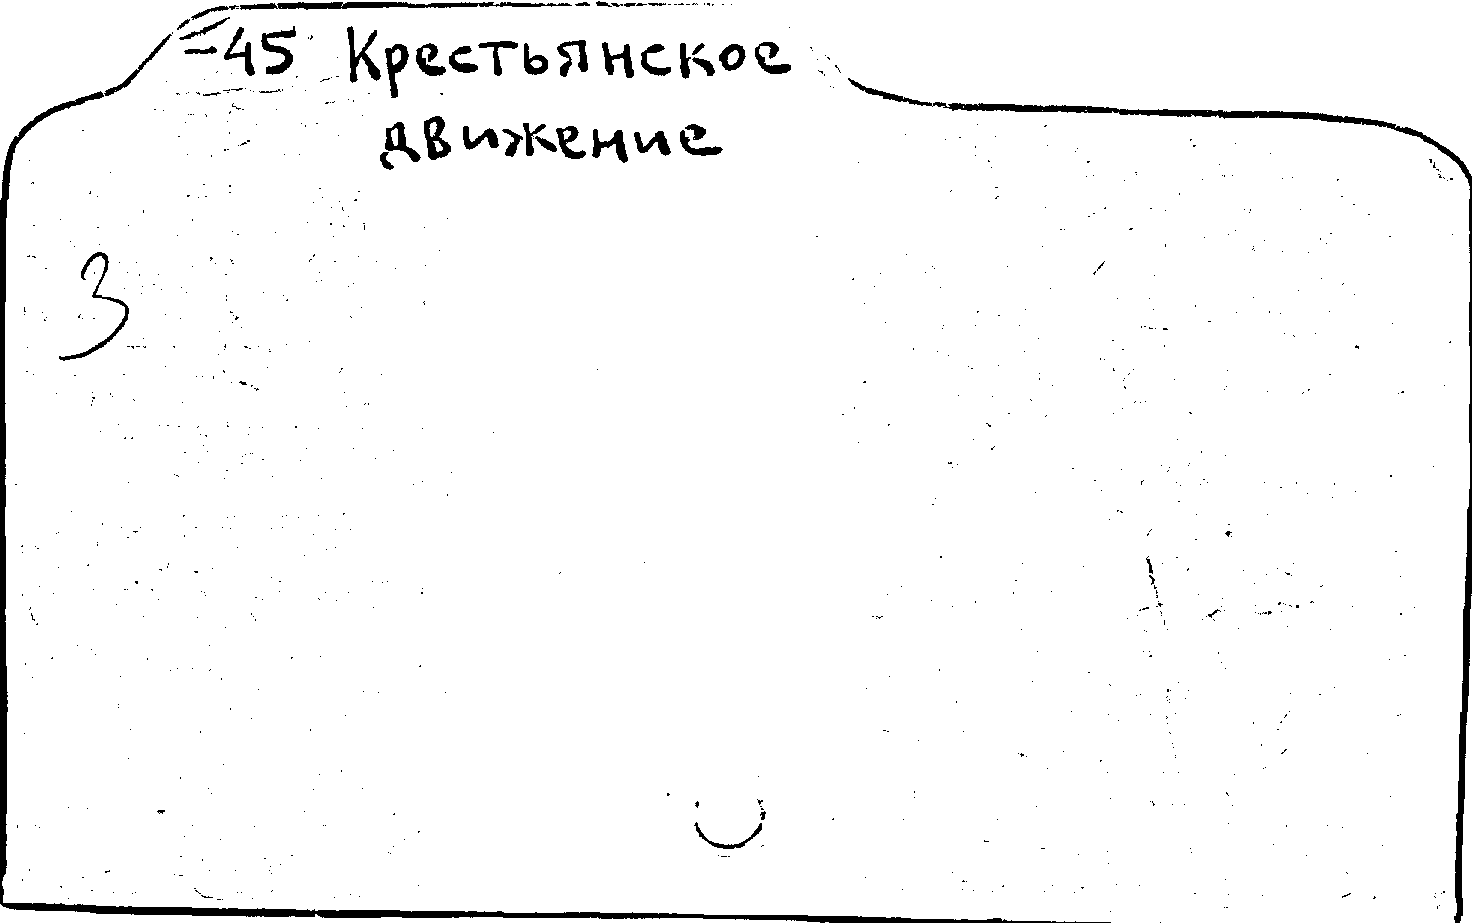 -45 Крестьянское
движение
3